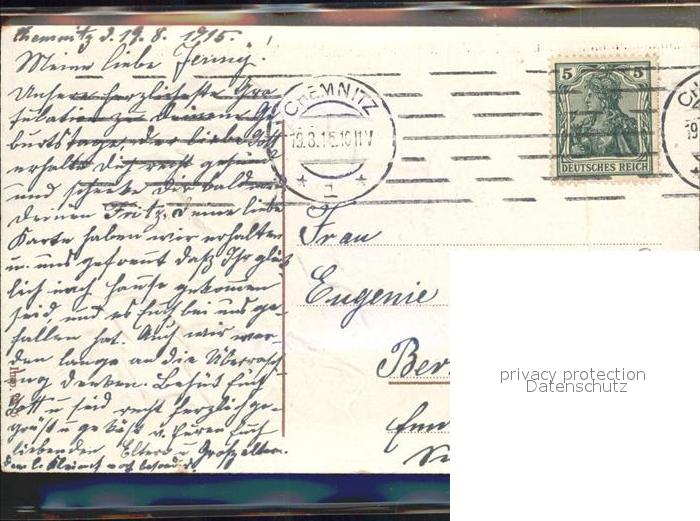 Chemnitz d. 19. 8. 1915.
Meine liebe Jenny!
Unsere herzlichste Gra
tulation zu Deinem Ge
burtstage, der liebe Gott
erhalte Dich recht gesund
und schenke Dir bald
Deinen Fritz, Deine liebe
Karte haben wir erhalten
u. uns gefreut daß Ihr glück
lich nach Hause gekommen
seid, und es Euch bei uns ge-
fallen hat. Auch wir wer-
den lange an die Überrasch
ung denken. Behüt Euch
Gott u seid recht herzlich ge-
grüßt u geküßt v. Euren Euch
liebenden Eltern u Großeltern.
CHEMNITZ
19.8.15.10-11V
1
5 5
DEUTSCHES REICH
Frau
Eugenie
Ber
privacy protection
Datenschutz